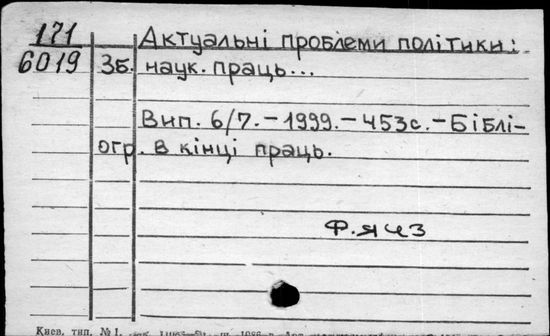 171 Актуальні проблеми політики:
6019 Зб. наук. праць...
Вип. 6/7. – 1999. – 453с. – Бiблi-
огр. в кінці праць.
Ф. яиз
Киев. тип. №1.